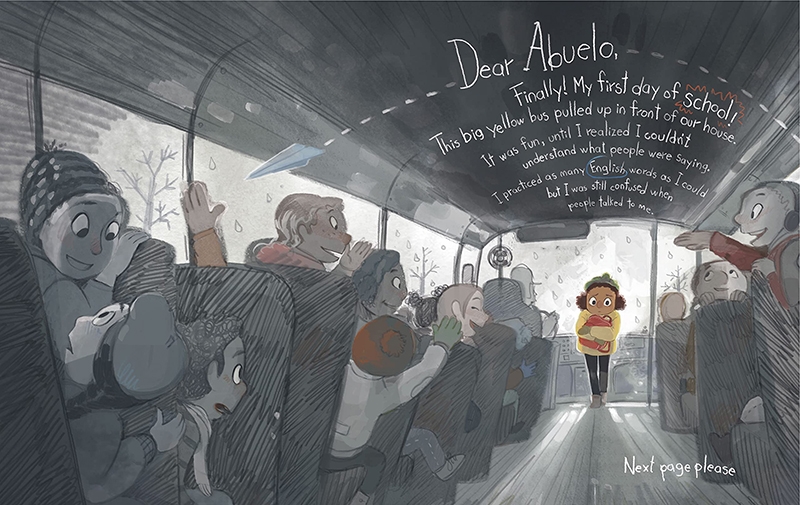 Dear Abuelo,
Finally! My first day of school!
This big yellow bus pulled up in front of our house.
It was fun, until I realized I couldn't
understand what people were saying.
I practiced as many English words as I could
but I was still confused when
people talked to me.
Next page please